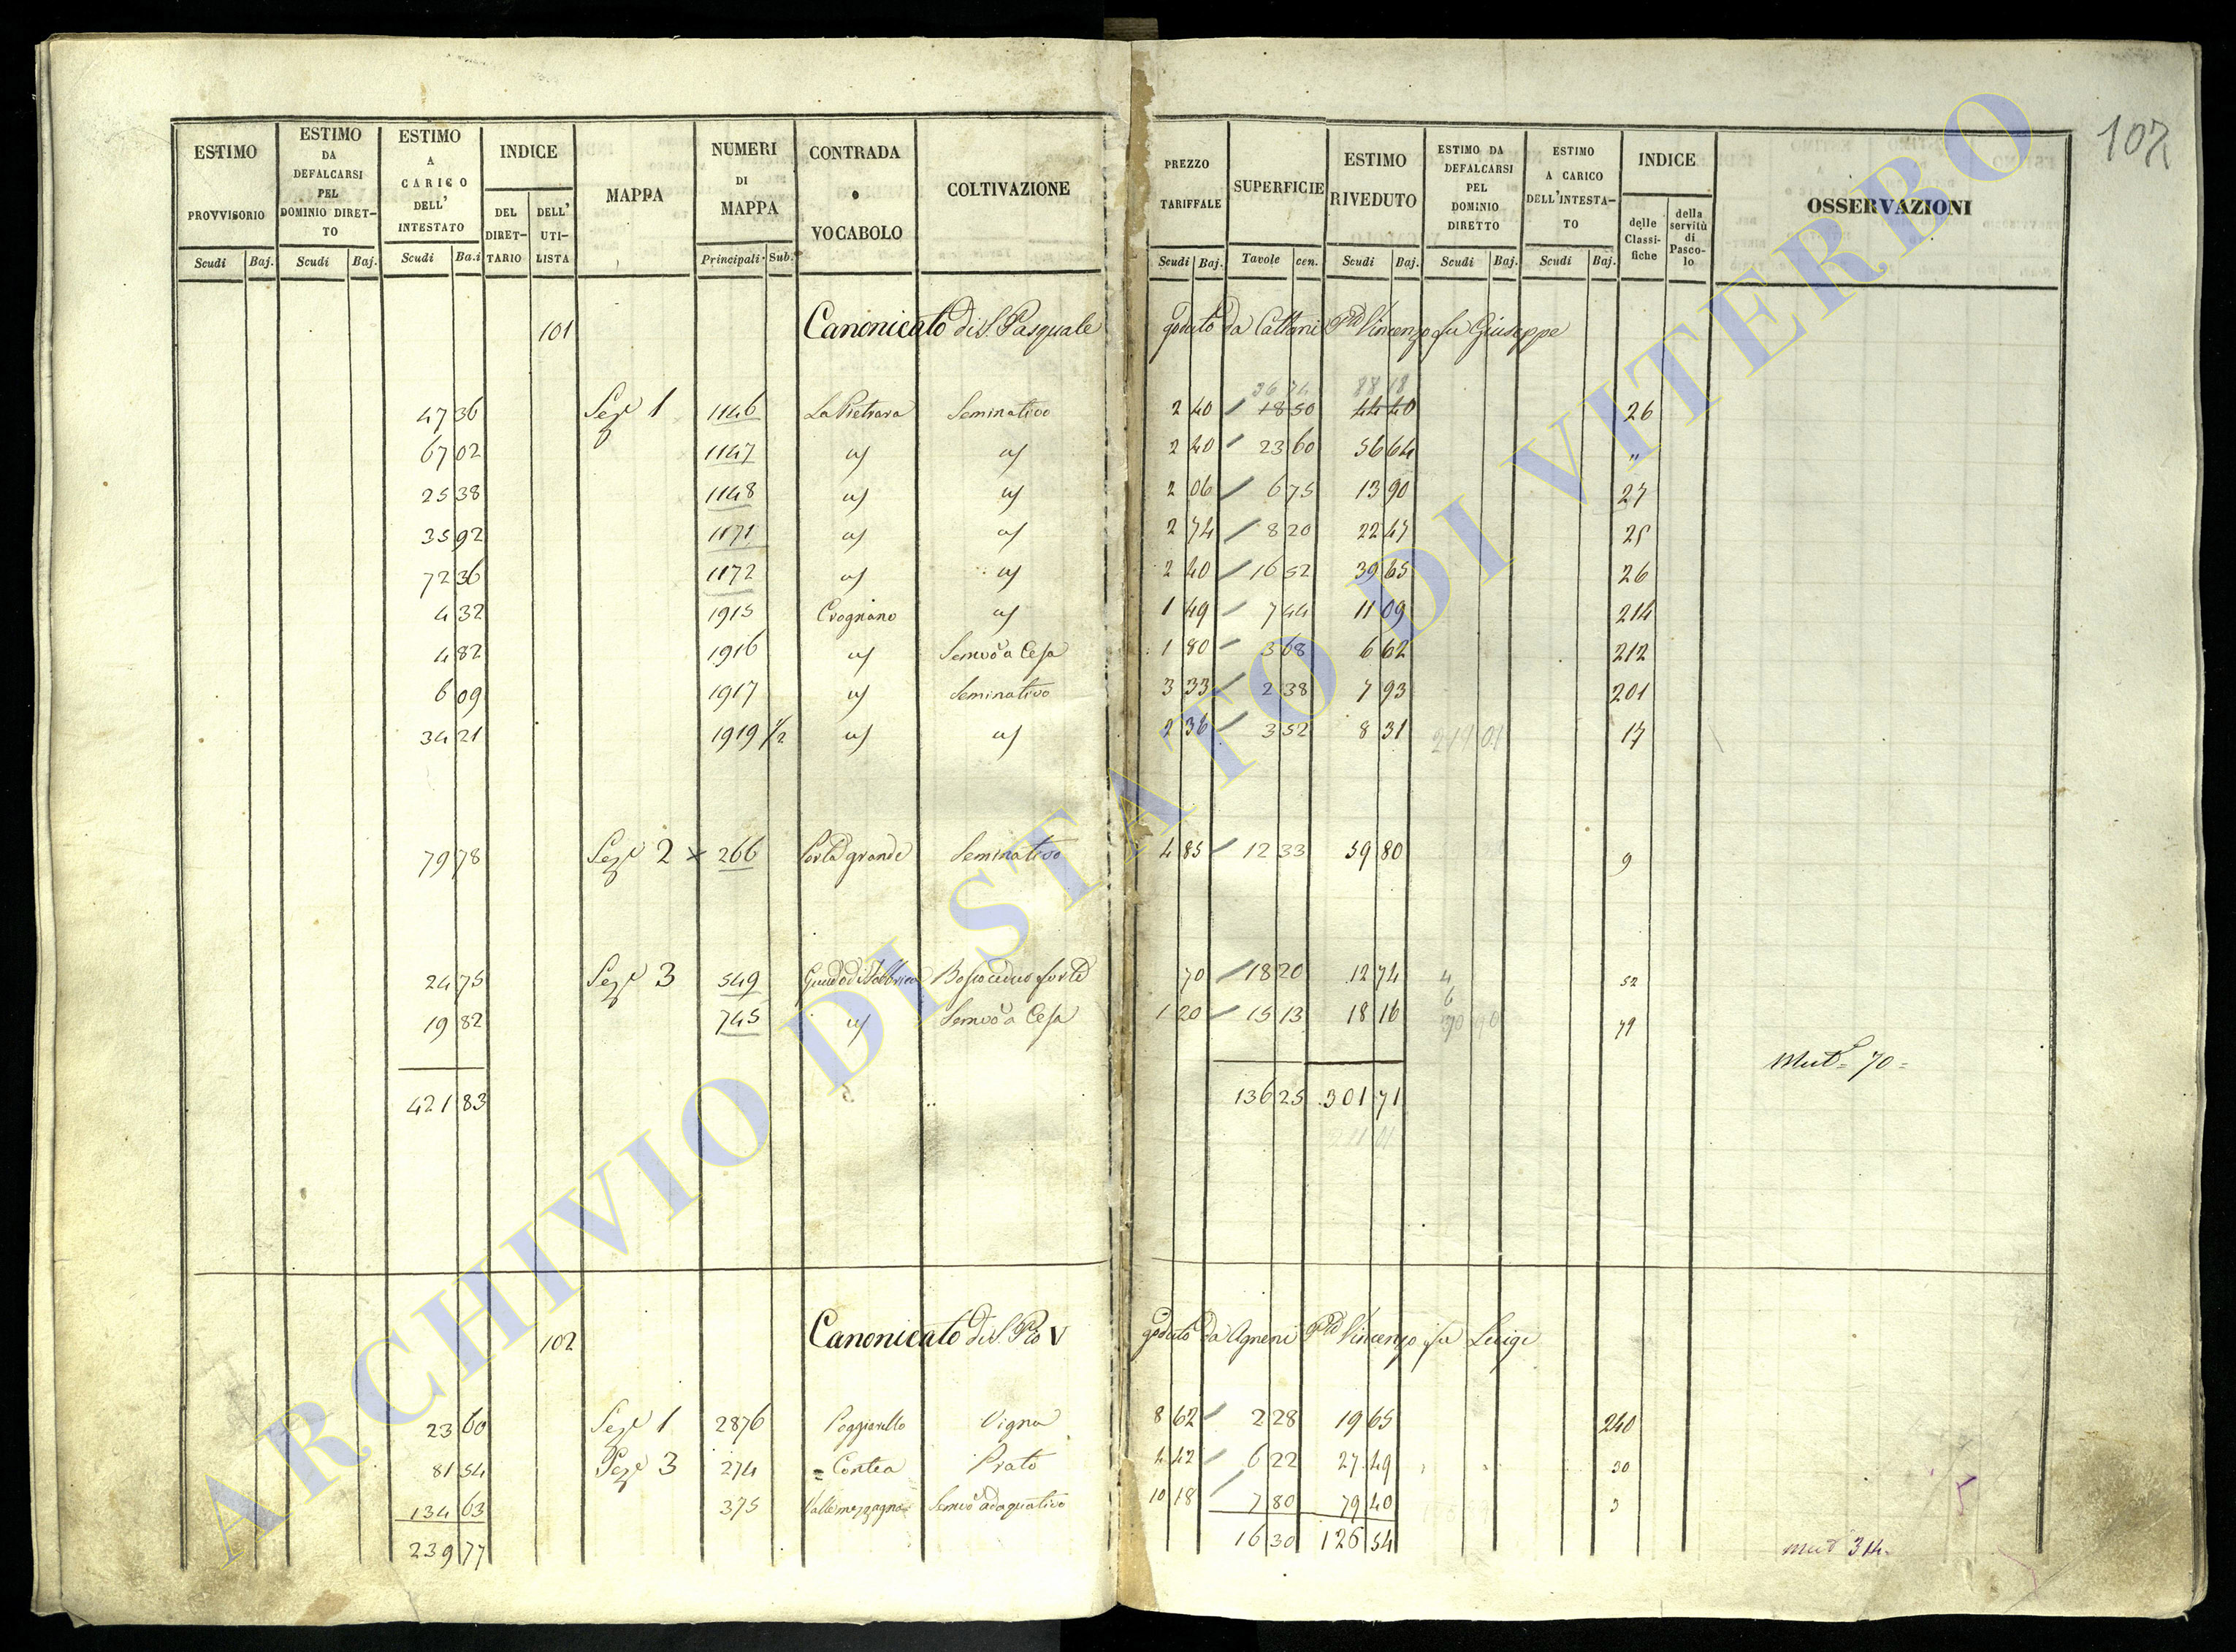 107
ESTIMO PROVVISORIO ESTIMO DA DEFALCARSI PEL DOMINIO DIRET-TO ESTIMO A CARICO DELL' INTESTATO INDICE DEL DIRET-TARIO DELL' UTI-LISTA MAPPA NUMERI DI MAPPA CONTRADA o VOCABOLO COLTIVAZIONE PREZZO TARIFFALE SUPERFICIE ESTIMO RIVEDUTO ESTIMO DA DEFALCARSI PEL DOMINIO DIRETTO ESTIMO A CARICO DELL'INTESTA-TO INDICE delle Classi-fiche della servitù di Pasco-lo OSSERVAZIONI
Scudi Baj. Scudi Baj. Scudi Baj. Principali Sub. Scudi Baj. Tavole cen. Scudi Baj. Scudi Baj. Scudi Baj.
101 Canonicato di S. Pasquale goduto da Cattani Vincenzo fu Giuseppe
36 74 88 18
47 36 Sez.e 1 1146 La Pietrara Seminativo 2 40 18 50 44 40 26
67 02 1147 2 40 23 60 56 64 "
25 38 1148 2 06 6 75 13 90 27
35 92 1171 2 74 8 20 22 47 25
72 36 1172 2 40 16 52 39 65 26
4 32 1915 Crognano 1 49 7 44 11 09 214
4 82 1916 Semvo a Cesa 1 80 3 68 6 62 212
6 09 1917 Seminativo 3 33 2 38 7 93 201
34 21 1919 1/2 2 36 3 52 8 31 17
79 78 Sez.e 2 x 266 Porta grande Seminativo 4 85 12 33 59 80 9
24 75 Sez.e 3 549 Bosco ceduo forte 70 18 20 12 74 52
19 82 745 Semvo a Cesa 1 20 15 13 18 16 79
Mut.e 70
421 83 136 25 301 71
102 Canonicato di S. Pio V goduto da Agneni Vincenzo fu Luigi
23 60 Sez.e 1 2876 Poggiarello Vigna 8 62 2 28 19 65 240
81 54 Sez.e 3 274 Contea Prato 4 42 6 22 27 49 30
134 63 375 Semvo adaquativo 10 18 7 80 79 40 3
5
239 77 16 30 126 54 mut 314
ARCHIVIO DI STATO DI VITERBO